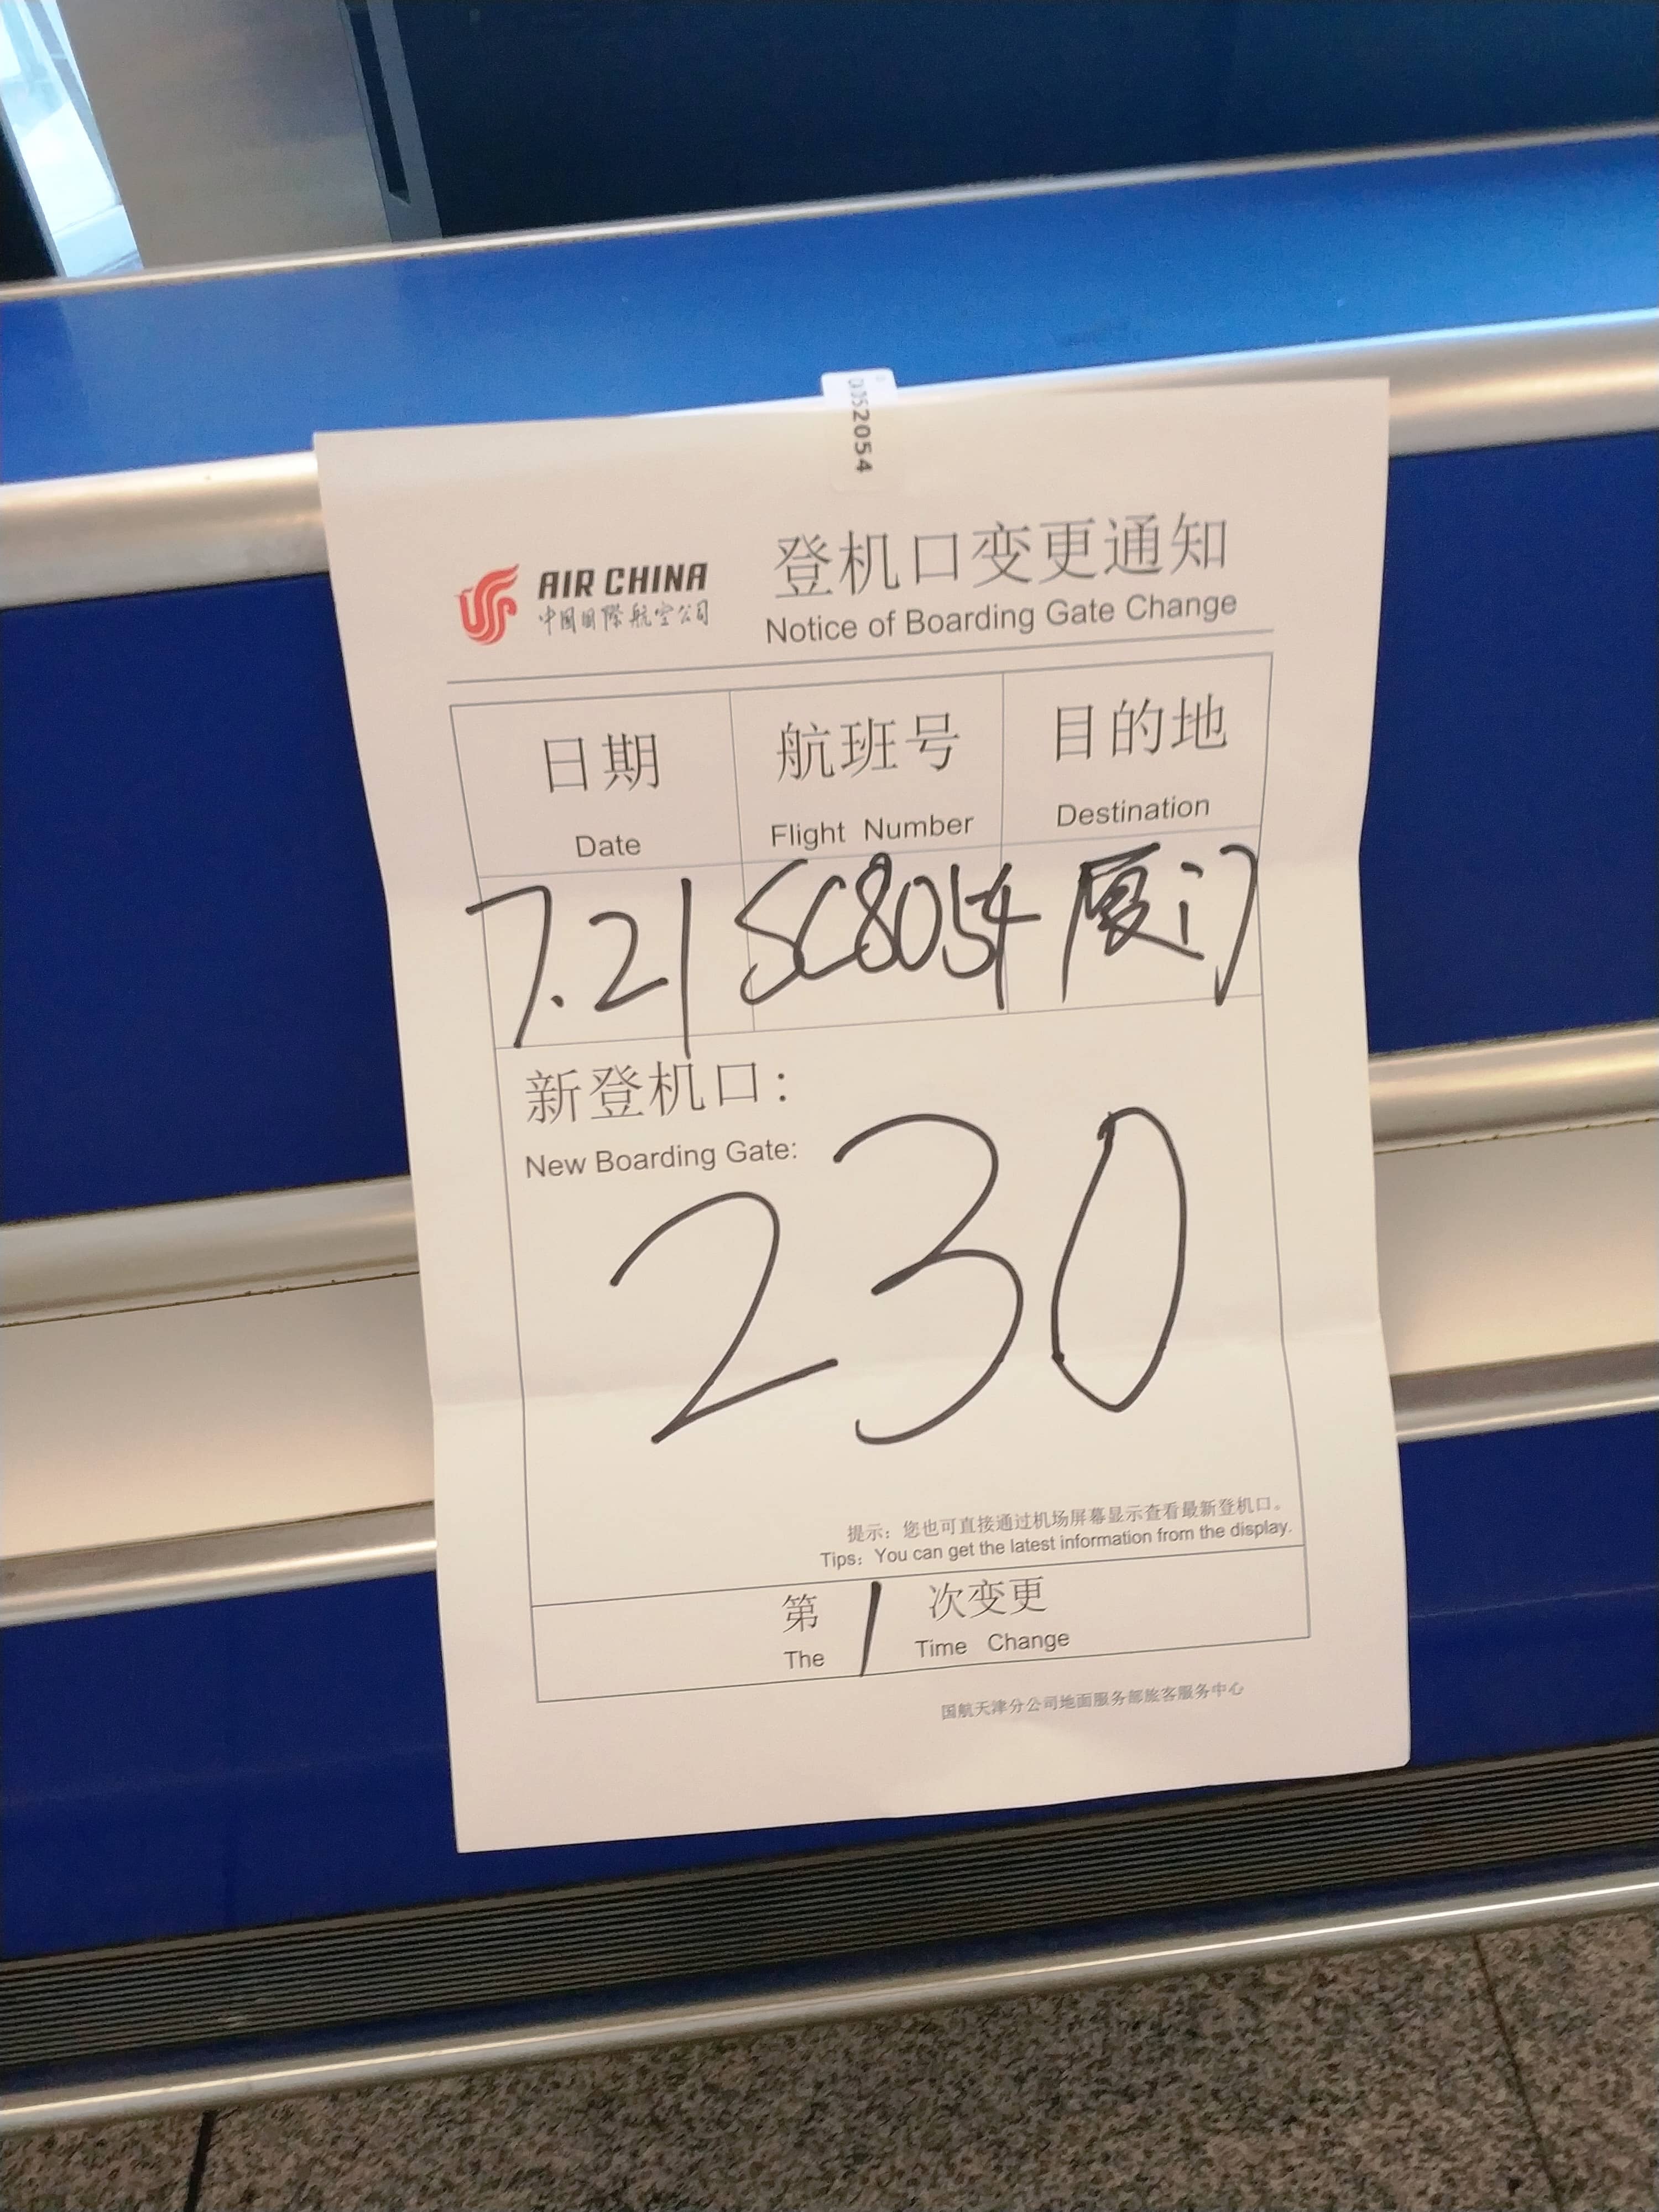 0052054
AIR CHINA
中国国際航空公司
登机口变更通知
Notice of Boarding Gate Change
日期 航班号 目的地
Date Flight Number Destination
7.21 SC8054 厦门
新登机口:
New Boarding Gate:
230
提示：您也可直接通过机场屏幕显示查看最新登机口。
Tips: You can get the latest information from the display.
第 1 次变更
The Time Change
国航天津分公司地面服务部旅客服务中心